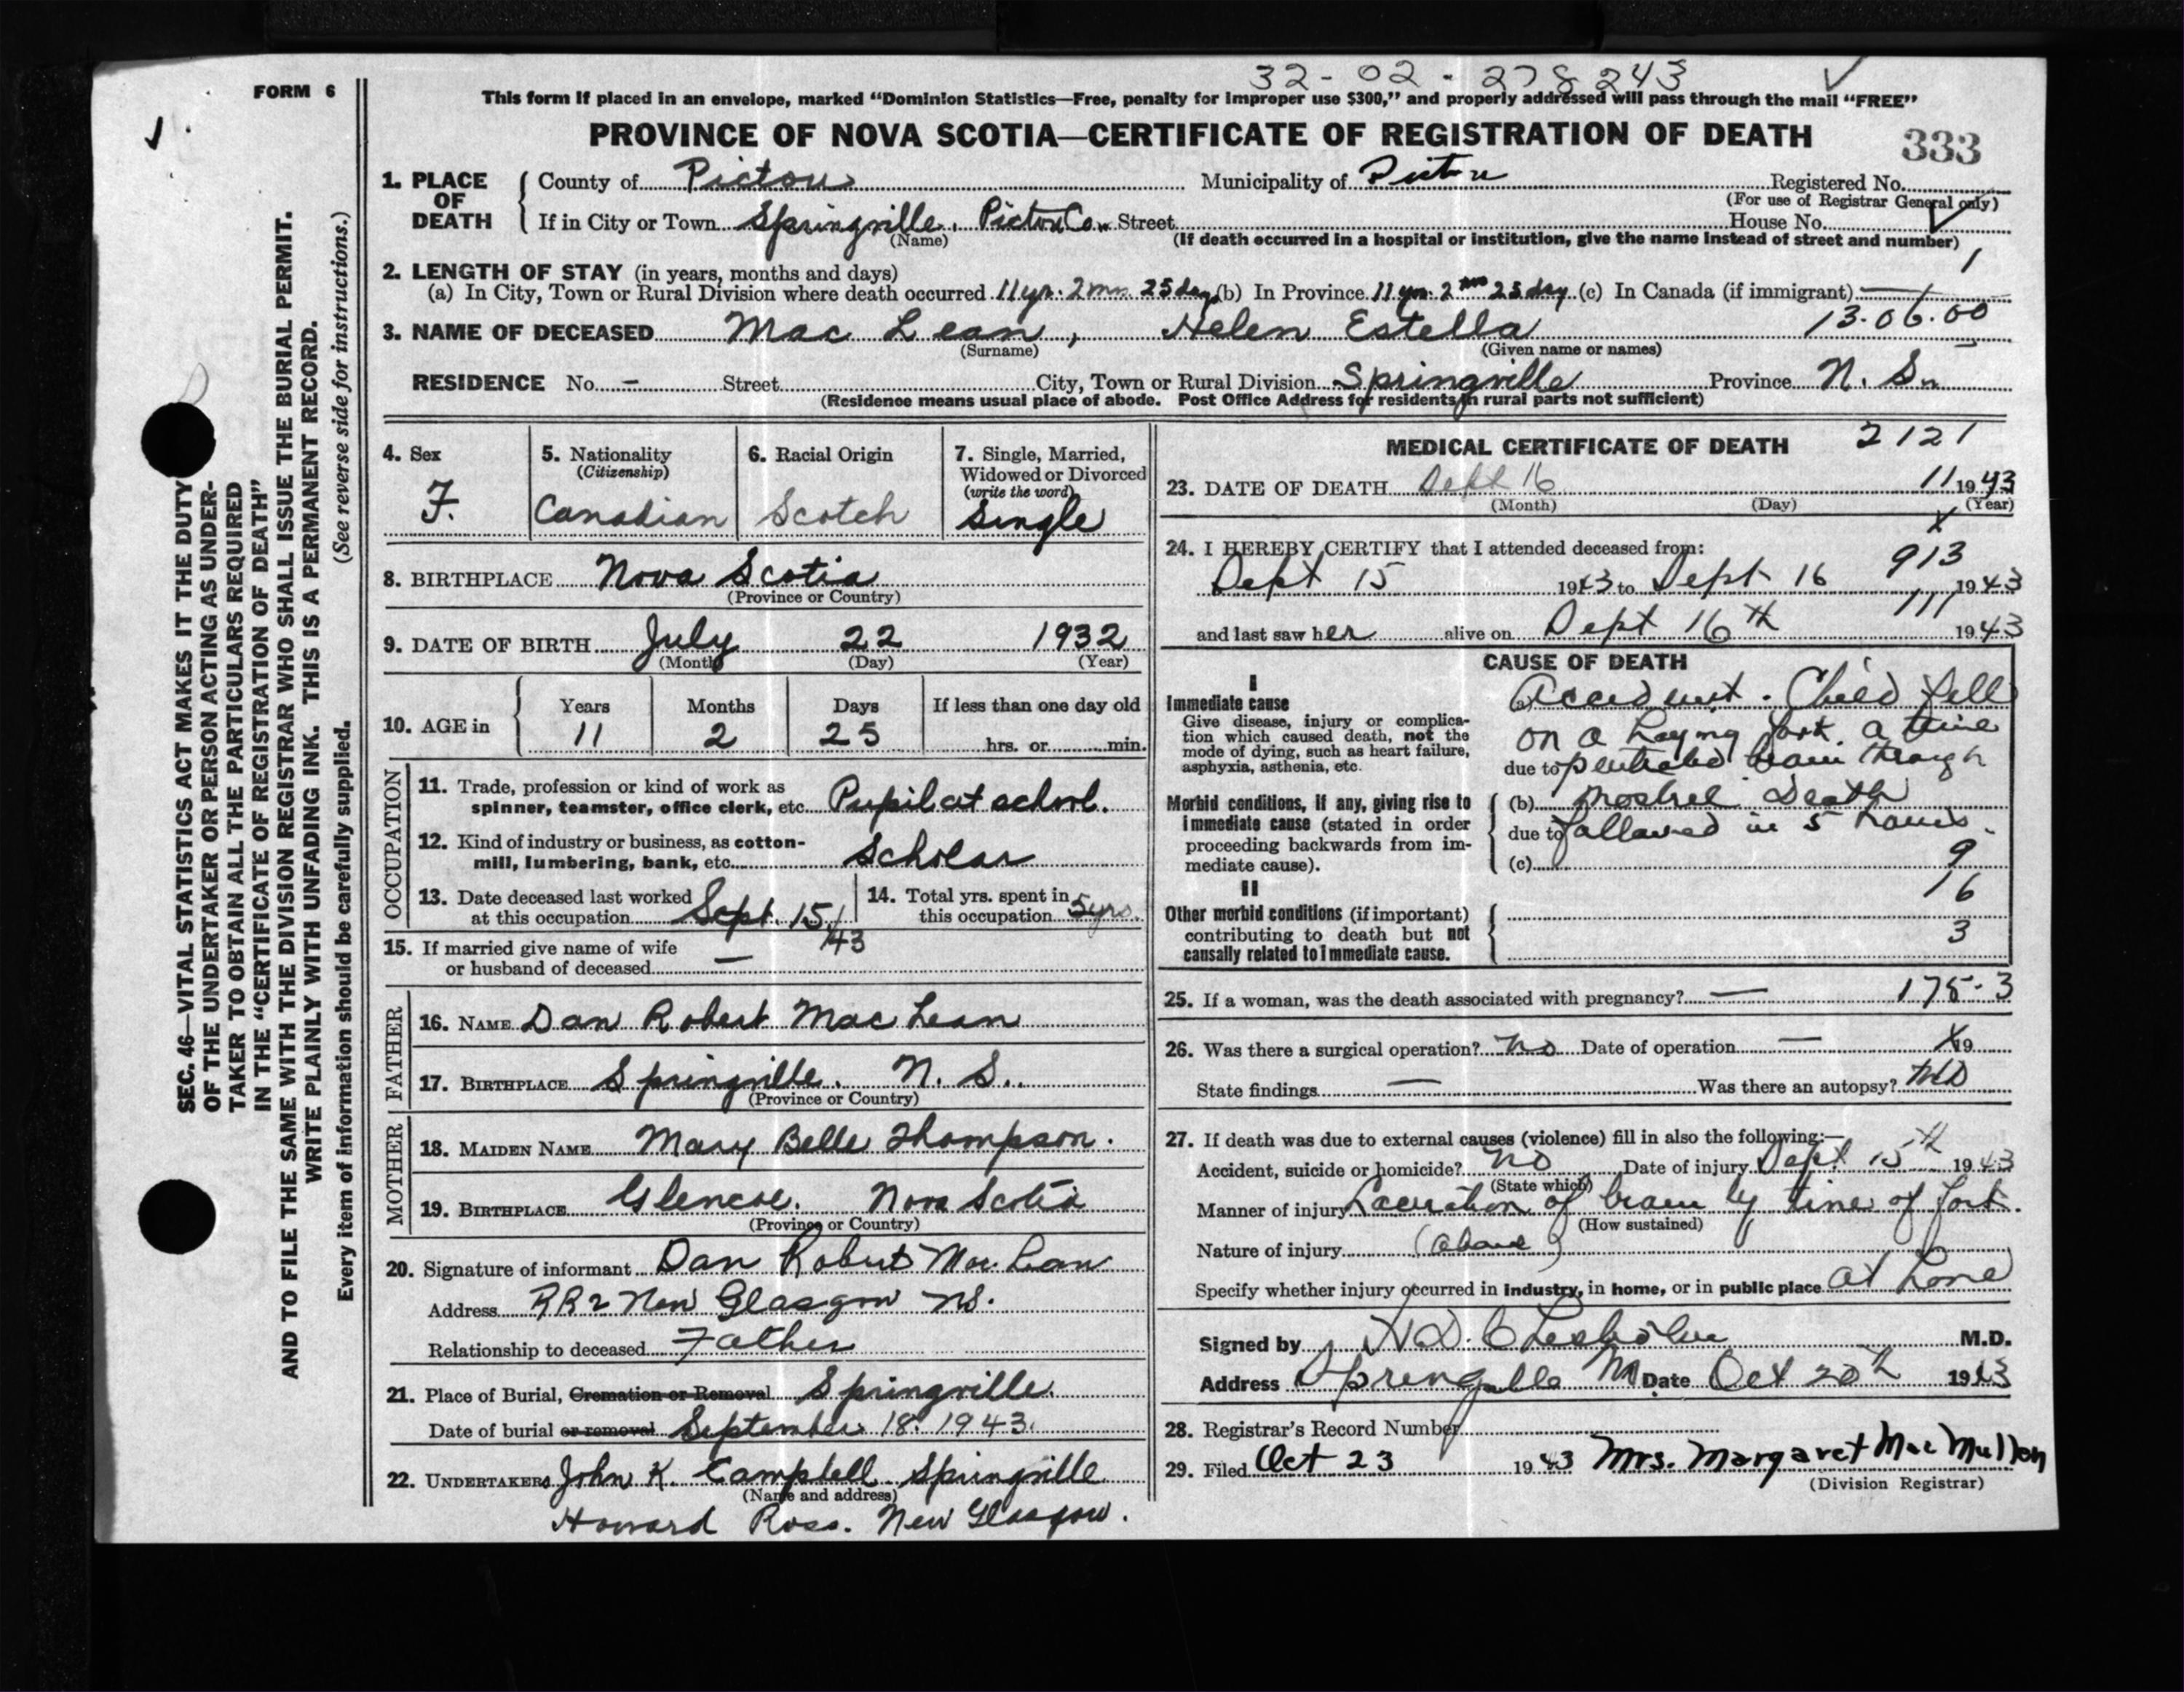 FORM 6
32-02-278243
This form if placed in an envelope, marked "Dominion Statistics—Free, penalty for improper use $300," and properly addressed will pass through the mail "FREE"
PROVINCE OF NOVA SCOTIA—CERTIFICATE OF REGISTRATION OF DEATH
333
1. PLACE OF DEATH
County of Pictou Municipality of Pictou Registered No.
(For use of Registrar General only)
If in City or Town Springville, Pictou Co. Street House No.
(Name) (If death occurred in a hospital or institution, give the name instead of street and number)
1
2. LENGTH OF STAY (in years, months and days)
(a) In City, Town or Rural Division where death occurred 11 yr. 2 mo. 25 day (b) In Province 11 yr. 2 mo 25 day (c) In Canada (if immigrant) —
13.06.00
3. NAME OF DECEASED Mac Lean, Helen Estella
(Surname) (Given name or names)
RESIDENCE No. - Street City, Town or Rural Division Springville Province N. S.
(Residence means usual place of abode. Post Office Address for residents in rural parts not sufficient)
4. Sex
F.
5. Nationality
(Citizenship)
Canadian
6. Racial Origin
Scotch
7. Single, Married,
Widowed or Divorced
(write the word)
Single
8. BIRTHPLACE Nova Scotia
(Province or Country)
9. DATE OF BIRTH July 22 1932
(Month) (Day) (Year)
10. AGE in
Years Months Days If less than one day old
11 2 25 hrs. or min.
OCCUPATION
11. Trade, profession or kind of work as
spinner, teamster, office clerk, etc. Pupil at school.
12. Kind of industry or business, as cotton-
mill, lumbering, bank, etc. Scholar
13. Date deceased last worked
at this occupation Sept. 15/43
14. Total yrs. spent in
this occupation 5 yrs.
15. If married give name of wife
or husband of deceased —
FATHER
16. NAME Dan Robert Mac Lean
17. BIRTHPLACE Springville. N. S.
(Province or Country)
MOTHER
18. MAIDEN NAME Mary Belle Thompson.
19. BIRTHPLACE Glencoe. Nova Scotia
(Province or Country)
20. Signature of informant Dan Robert Mac Lean
Address RR2 New Glasgow NS.
Relationship to deceased Father
21. Place of Burial, Cremation or Removal Springville.
Date of burial or removal September 18. 1943.
22. UNDERTAKERS John K. Campbell Springville
(Name and address)
Howard Ross. New Glasgow.
MEDICAL CERTIFICATE OF DEATH
2121
23. DATE OF DEATH Sept 16 11 1943
(Month) (Day) (Year)
24. I HEREBY CERTIFY that I attended deceased from:
913
Sept 15 1943 to Sept 16 1943
111
and last saw her alive on Sept 16th 1943
CAUSE OF DEATH
I
Immediate cause
Give disease, injury or complica-
tion which caused death, not the
mode of dying, such as heart failure,
asphyxia, asthenia, etc.
Accident. Child fell
on a haying fork. a tine
due to penetrated brain through
Morbid conditions, if any, giving rise to
immediate cause (stated in order
proceeding backwards from im-
mediate cause).
(b) nostril Death
due to followed in 5 hours.
(c) 9
16
II
Other morbid conditions (if important)
contributing to death but not
causally related to immediate cause.
3
25. If a woman, was the death associated with pregnancy? — 175-3
26. Was there a surgical operation? No Date of operation — 19
State findings — Was there an autopsy? No
27. If death was due to external causes (violence) fill in also the following:—
Accident, suicide or homicide? No Date of injury Sept 15th 1943
(State which)
Manner of injury Laceration of brain by tine of fork.
(How sustained)
Nature of injury (above)
Specify whether injury occurred in industry, in home, or in public place at home
Signed by M.D.
Address Springville NS Date Oct 20th 1943
28. Registrar's Record Number
29. Filed Oct 23 1943 Mrs. Margaret Mac Mullen
(Division Registrar)
SEC. 46—VITAL STATISTICS ACT MAKES IT THE DUTY
OF THE UNDERTAKER OR PERSON ACTING AS UNDER-
TAKER TO OBTAIN ALL THE PARTICULARS REQUIRED
IN THE "CERTIFICATE OF REGISTRATION OF DEATH"
AND TO FILE THE SAME WITH THE DIVISION REGISTRAR WHO SHALL ISSUE THE BURIAL PERMIT.
WRITE PLAINLY WITH UNFADING INK. THIS IS A PERMANENT RECORD.
Every item of information should be carefully supplied. (See reverse side for instructions.)